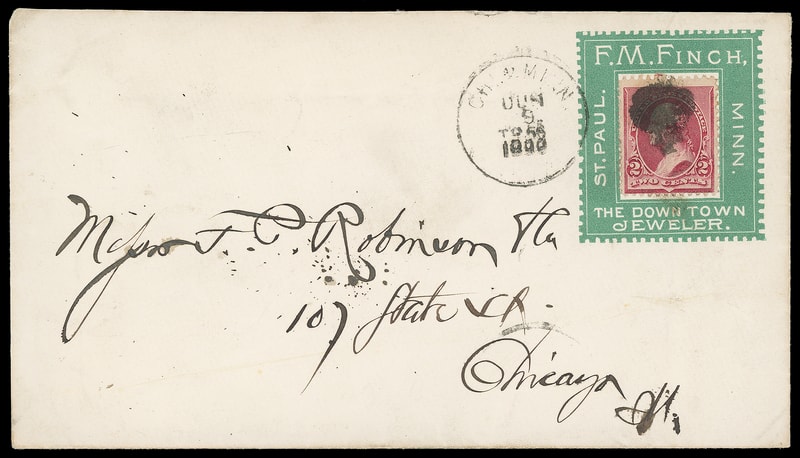 F.M. FINCH,
ST. PAUL.
MINN.
2 2
TWO CENTS
THE DOWN TOWN
JEWELER.
MINN.
JUN
9
Messrs F. P. Robinson & Co
107 State St.
Chicago
Ill.